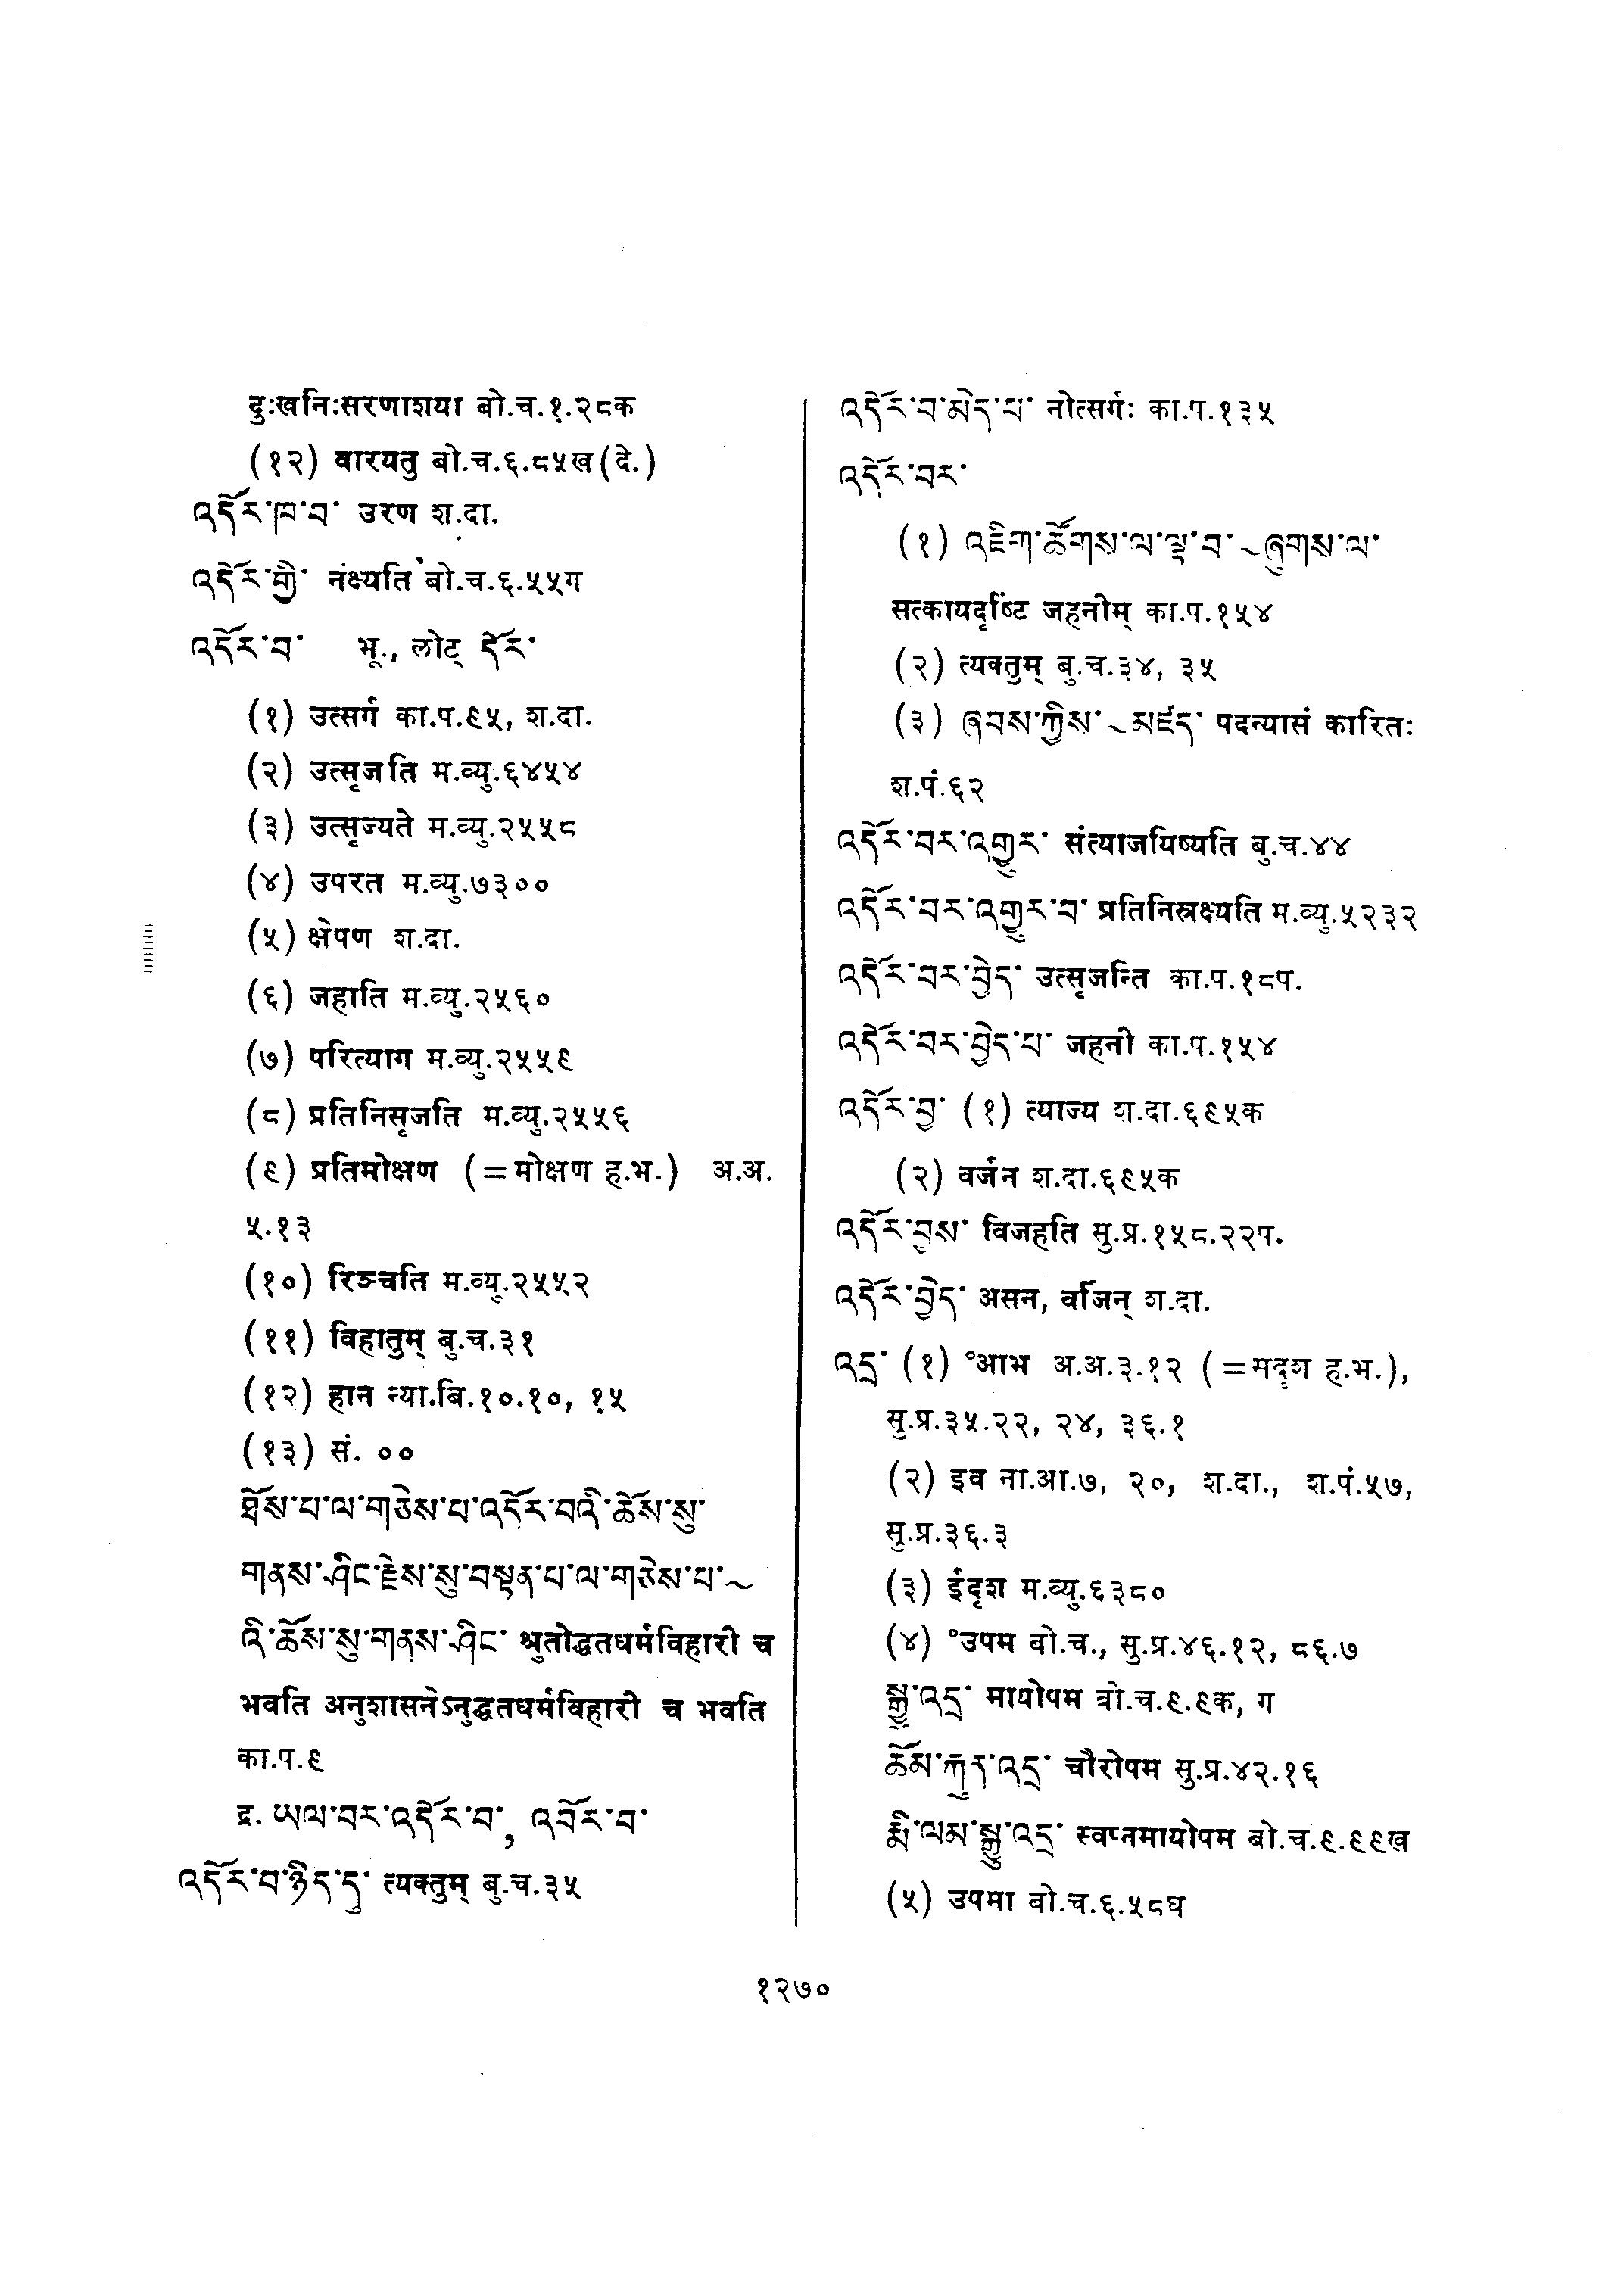 दुःखनिःसरणाशया बो.च.१.२८क
(१२) वारयतु बो.च.६.८५ख(दे.)
འདོར་ཁ་བ་ उरण श.दा.
འདོར་གྱི་ नंक्ष्यति बो.च.६.५५ग
འདོར་བ་ भू., लोट् དོར་
(१) उत्सर्ग का.प.९५, श.दा.
(२) उत्सृजति म.व्यु.६४५४
(३) उत्सृज्यते म.व्यु.२५५८
(४) उपरत म.व्यु.७३००
(५) क्षेपण श.दा.
(६) जहाति म.व्यु.२५६०
(७) परित्याग म.व्यु.२५५९
(८) प्रतिनिसृजति म.व्यु.२५५६
(९) प्रतिमोक्षण (=मोक्षण ह.भ.) अ.अ.
५.१३
(१०) रिञ्चति म.व्यु.२५५२
(११) विहातुम् बु.च.३१
(१२) हान न्या.बि.१०.१०, १५
(१३) सं. ००
ཐོས་པ་ལ་གཅེས་པ་འདོར་བའི་ཆོས་སུ་
གནས་ཤིང་རྗེས་སུ་བསྟན་པ་ལ་གཅེས་པ་~
འི་ཆོས་སུ་གནས་ཤིང་ श्रुतोद्धतधर्मविहारी च
भवति अनुशासनेऽनुद्धतधर्मविहारी च भवति
का.प.९
द्र. ཡལ་བར་འདོར་བ་, འབོར་བ་
འདོར་བ་ཉིད་དུ་ त्यक्तुम् बु.च.३५
འདོར་བ་མེད་པ་ नोत्सर्गः का.प.१३५
འདོར་བར་
(१) འཇིག་ཚོགས་ལ་ལྟ་བ་~ཞུགས་ལ་
सत्कायदृष्टि जहनीम् का.प.१५४
(२) त्यक्तुम् बु.च.३४, ३५
(३) ཞབས་ཀྱིས་~མཛད་ पदन्यासं कारितः
श.पं.६२
འདོར་བར་འགྱུར་ संत्याजयिष्यति बु.च.४४
འདོར་བར་འགྱུར་བ་ प्रतिनिस्रक्ष्यति म.व्यु.५२३२
འདོར་བར་བྱེད་ उत्सृजन्ति का.प.१८प.
འདོར་བར་བྱེད་པ་ जहनी का.प.१५४
འདོར་བྱ་ (१) त्याज्य श.दा.६९५क
(२) वर्जन श.दा.६९५क
འདོར་བྱས་ विजहति सु.प्र.१५८.२२प.
འདོར་བྱེད་ असन, वर्जिन् श.दा.
འདྲ་ (१) °आभ अ.अ.३.१२ (=सदृश ह.भ.),
सु.प्र.३५.२२, २४, ३६.१
(२) इव ना.आ.७, २०, श.दा., श.पं.५७,
सु.प्र.३६.३
(३) ईदृश म.व्यु.६३८०
(४) °उपम बो.च., सु.प्र.४६.१२, ८६.७
སྒྱུ་འདྲ་ मायोपम बो.च.९.९क, ग
ཆོམ་རྐུན་འདྲ་ चौरोपम सु.प्र.४२.१६
རྨི་ལམ་སྒྱུ་འདྲ་ स्वप्नमायोपम बो.च.९.९९ख
(५) उपमा बो.च.६.५८घ
१२७०